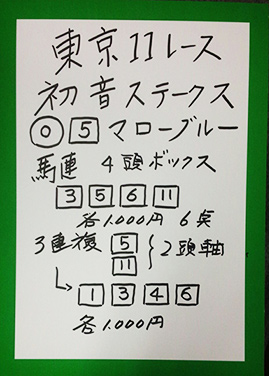 東京11レース
初音ステークス
◎ 5 マローブルー
馬連 4頭ボックス
3 5 6 11
各1.000円 6点
3連複 5 2頭軸
11
1 3 4 6
各1.000円